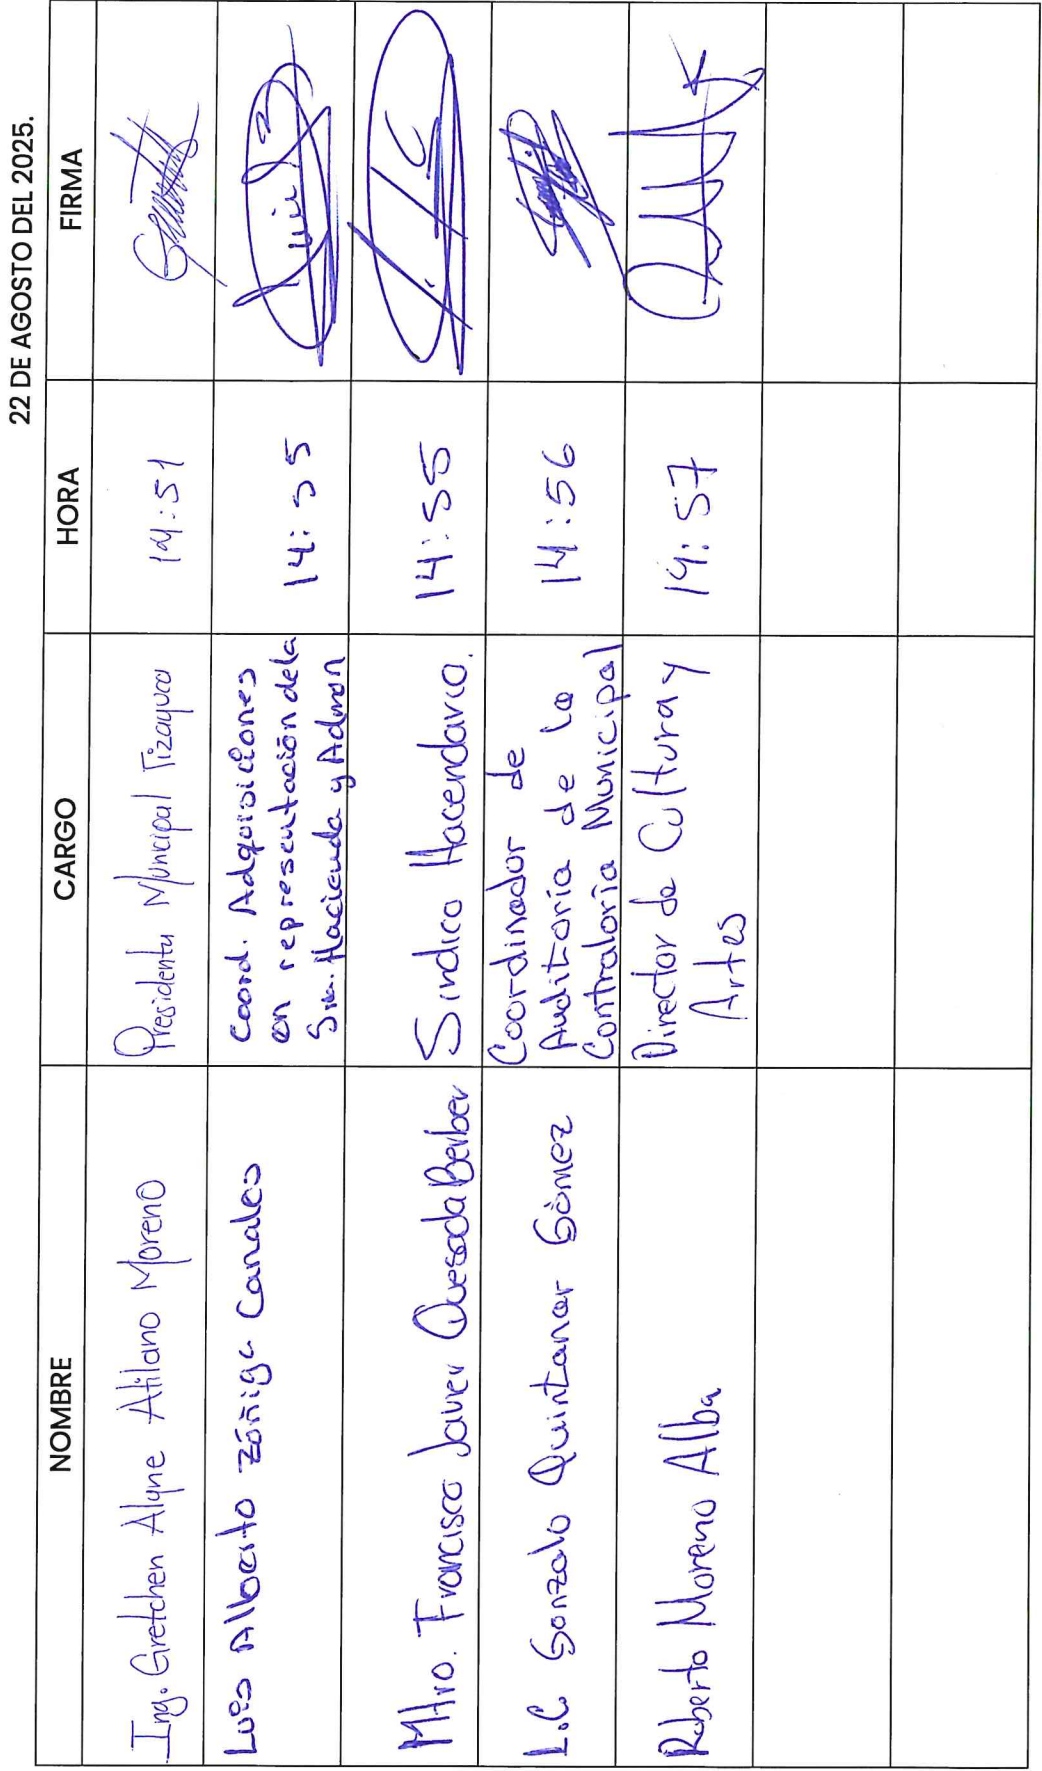 22 DE AGOSTO DEL 2025.
NOMBRE CARGO HORA FIRMA
Ing. Gretchen Alyne Atilano Moreno Presidenta Municipal Tizayuca 14:51
Luis Alberto Zúñiga Canales Coord. Adquisiciones
en representación de la
Sria. Hacienda y Admon 14:55
Mtro. Francisco Javier Quesada Berber Sindico Hacendario. 14:55
L.C. Gonzalo Quintanar Gómez Coordinador de
Auditoría de la
Contraloría Municipal 14:56
Roberto Moreno Alba Director de Cultura y
Artes 14:57